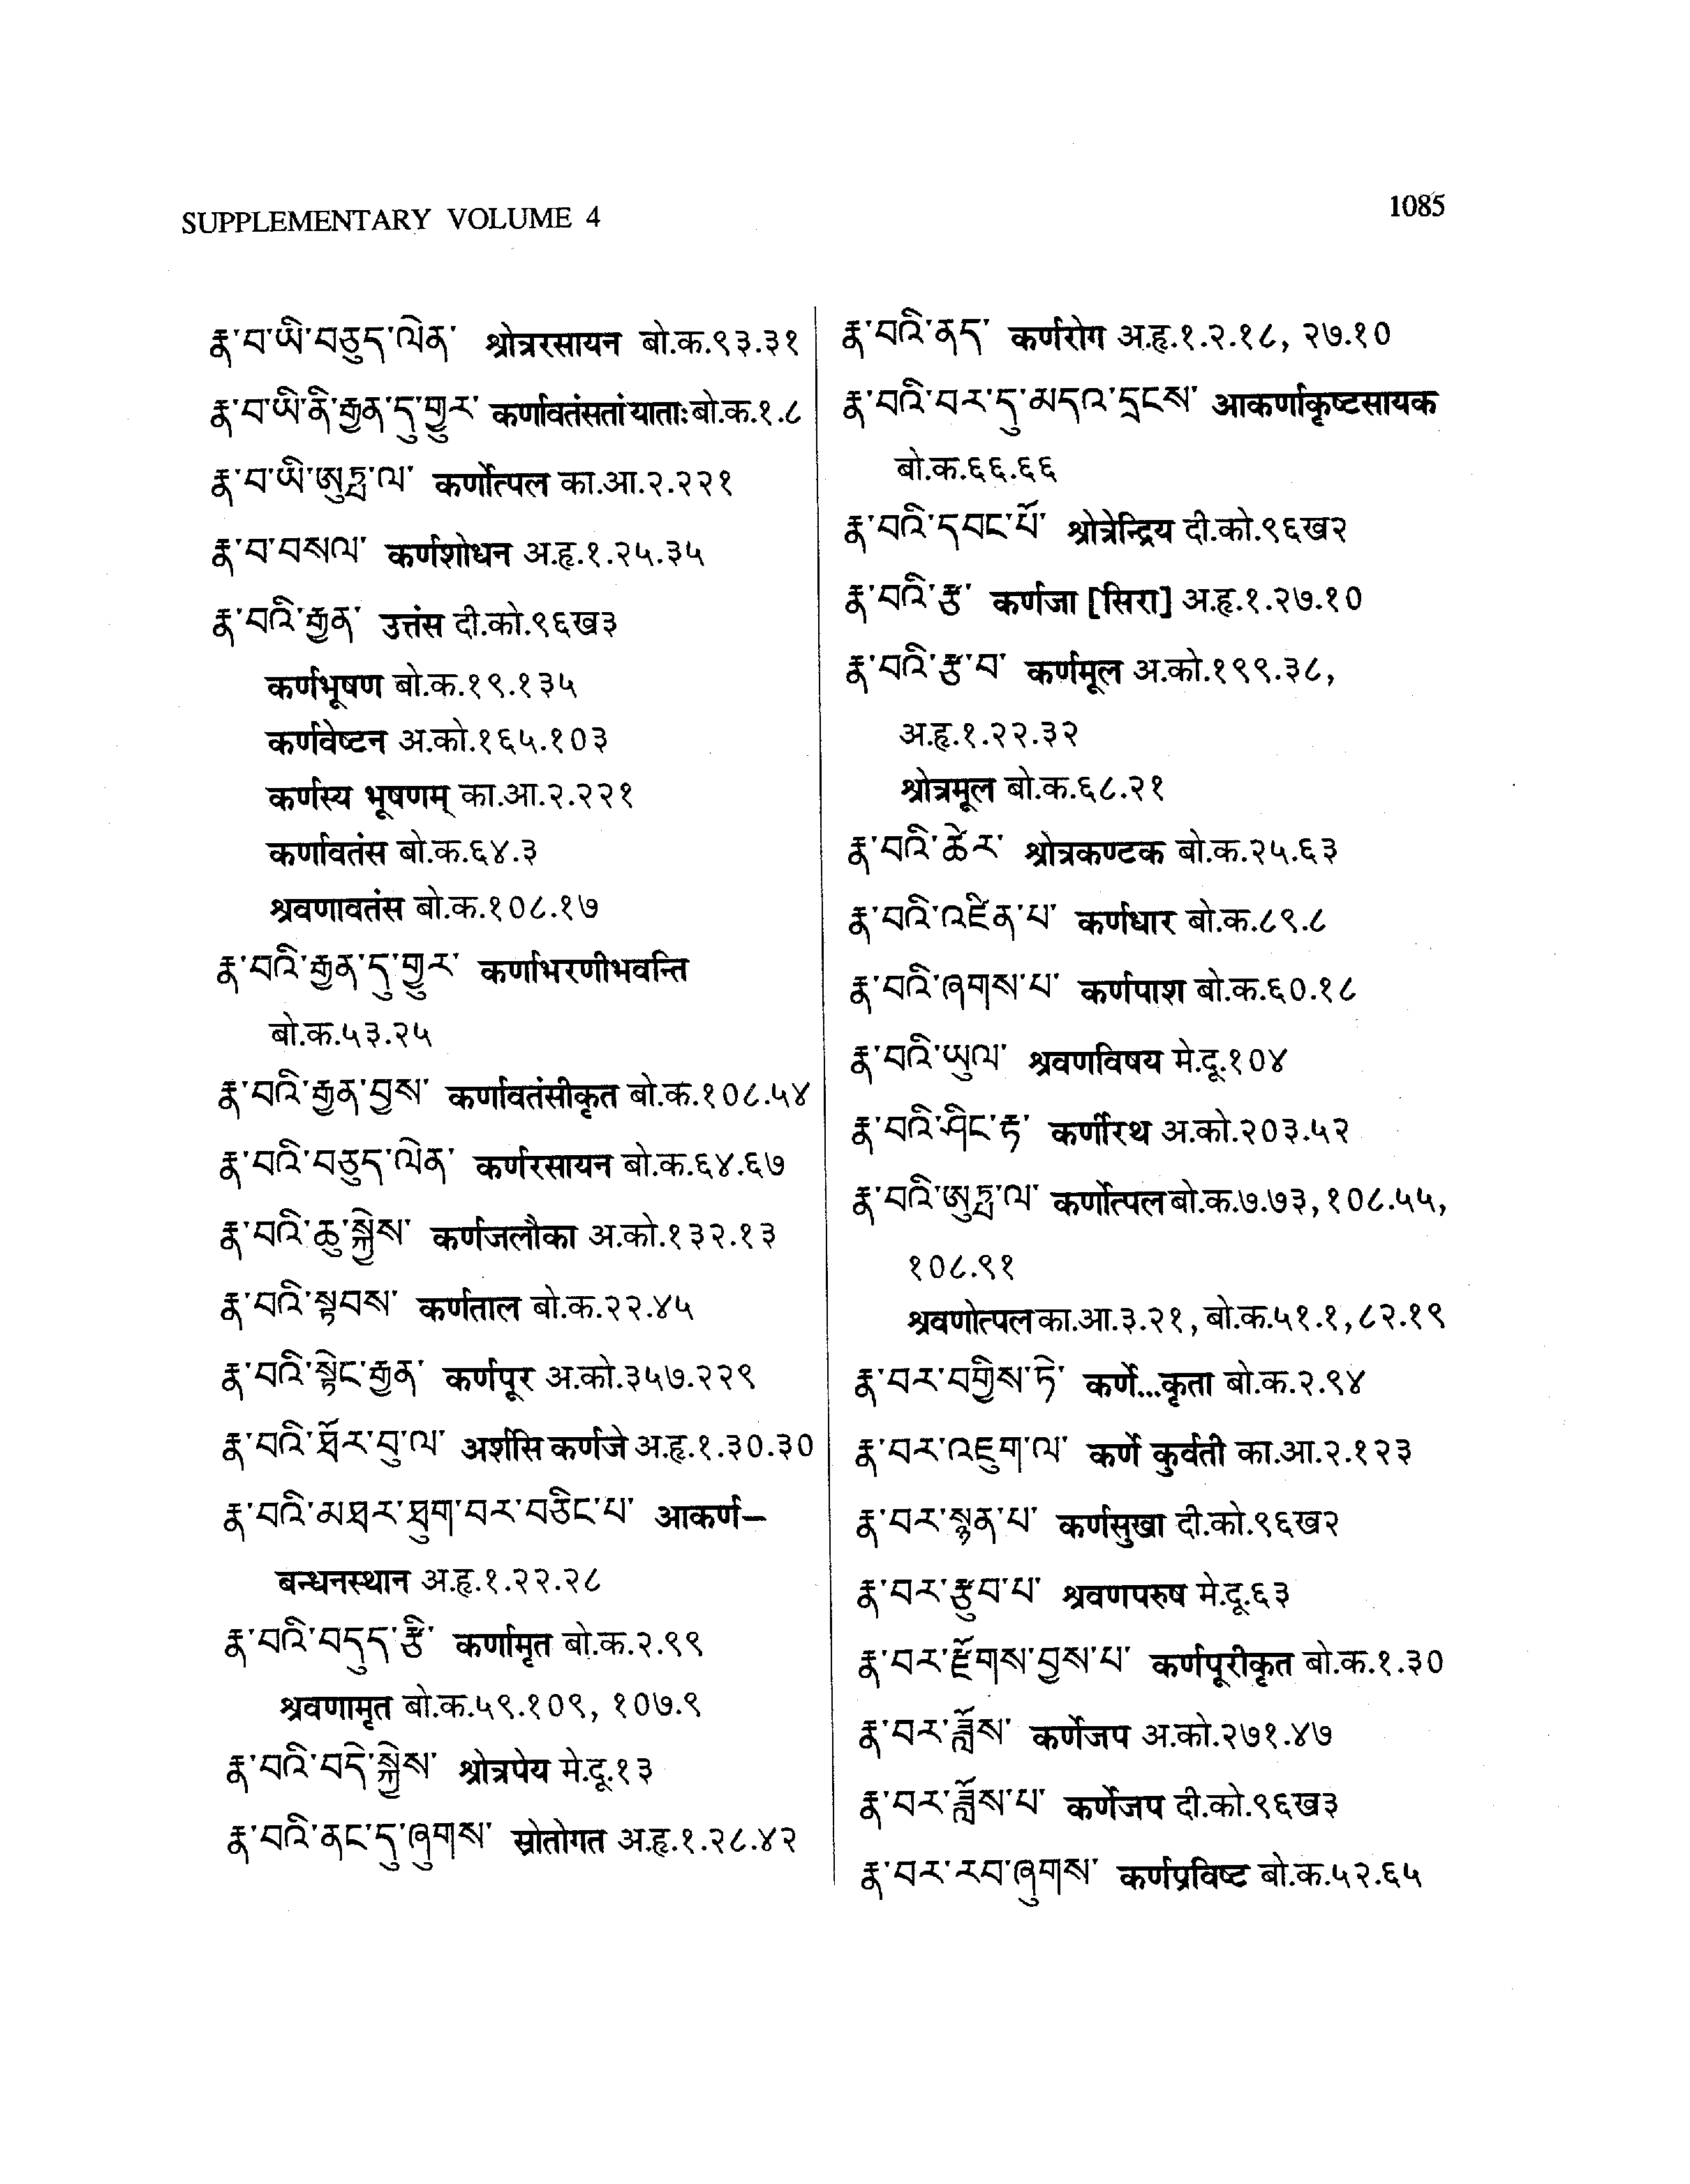 SUPPLEMENTARY VOLUME 4
1085
རྣ་བ་ཡི་བཅུད་ལེན་ श्रोत्ररसायन बो.क.९३.३१
རྣ་བ་ཡི་ནི་རྒྱན་དུ་གྱུར་ कर्णावतंसतां याताः बो.क.१.८
རྣ་བ་ཡི་ཨུཏྤ་ལ་ कर्णोत्पल का.आ.२.२२१
རྣ་བ་བསལ་ कर्णशोधन अ.हृ.१.२५.३५
རྣ་བའི་རྒྱན་ उत्तंस दी.को.९६ख३
कर्णभूषण बो.क.१९.१३५
कर्णवेष्टन अ.को.१६५.१०३
कर्णस्य भूषणम् का.आ.२.२२१
कर्णावतंस बो.क.६४.३
श्रवणावतंस बो.क.१०८.१७
རྣ་བའི་རྒྱན་དུ་གྱུར་ कर्णाभरणीभवन्ति
बो.क.५३.२५
རྣ་བའི་རྒྱན་བྱས་ कर्णावतंसीकृत बो.क.१०८.५४
རྣ་བའི་བཅུད་ལེན་ कर्णरसायन बो.क.६४.६७
རྣ་བའི་ཆུ་སྐྱེས་ कर्णजलौका अ.को.१३२.१३
རྣ་བའི་སྟབས་ कर्णताल बो.क.२२.४५
རྣ་བའི་སྟེང་རྒྱན་ कर्णपूर अ.को.३५७.२२९
རྣ་བའི་ཐོར་བུ་ལ་ अर्शसि कर्णजे अ.हृ.१.३०.३०
རྣ་བའི་མཐར་ཐུག་བར་བཅིང་པ་ आकर्ण–
बन्धनस्थान अ.हृ.१.२२.२८
རྣ་བའི་བདུད་རྩི་ कर्णामृत बो.क.२.९९
श्रवणामृत बो.क.५९.१०९, १०७.९
རྣ་བའི་བདེ་སྐྱེས་ श्रोत्रपेय मे.दू.१३
རྣ་བའི་ནང་དུ་ཞུགས་ स्रोतोगत अ.हृ.१.२८.४२
རྣ་བའི་ནད་ कर्णरोग अ.हृ.१.२.१८, २७.१०
རྣ་བའི་བར་དུ་མདའ་དྲངས་ आकर्णाकृष्टसायक
बो.क.६६.६६
རྣ་བའི་དབང་པོ་ श्रोत्रेन्द्रिय दी.को.९६ख२
རྣ་བའི་རྩ་ कर्णजा [सिरा] अ.हृ.१.२७.१०
རྣ་བའི་རྩ་བ་ कर्णमूल अ.को.१९९.३८,
अ.हृ.१.२२.३२
श्रोत्रमूल बो.क.६८.२१
རྣ་བའི་ཚེར་ श्रोत्रकण्टक बो.क.२५.६३
རྣ་བའི་འཛིན་པ་ कर्णधार बो.क.८९.८
རྣ་བའི་ཞགས་པ་ कर्णपाश बो.क.६०.१८
རྣ་བའི་ཡུལ་ श्रवणविषय मे.दू.१०४
རྣ་བའི་ཤིང་རྟ་ कर्णीरथ अ.को.२०३.५२
རྣ་བའི་ཨུཏྤ་ལ་ कर्णोत्पल बो.क.७.७३, १०८.५५,
१०८.९१
श्रवणोत्पल का.आ.३.२१, बो.क.५१.१, ८२.१९
རྣ་བར་བགྱིས་ཏེ་ कर्णे...कृता बो.क.२.९४
རྣ་བར་འཇུག་ལ་ कर्णे कुर्वती का.आ.२.१२३
རྣ་བར་སྙན་པ་ कर्णसुखा दी.को.९६ख२
རྣ་བར་རྩུབ་པ་ श्रवणपरुष मे.दू.६३
རྣ་བར་རྫོགས་བྱས་པ་ कर्णपूरीकृत बो.क.१.३०
རྣ་བར་ཟློས་ कर्णेजप अ.को.२७१.४७
རྣ་བར་ཟློས་པ་ कर्णेजप दी.को.९६ख३
རྣ་བར་རབ་ཞུགས་ कर्णप्रविष्ट बो.क.५२.६५